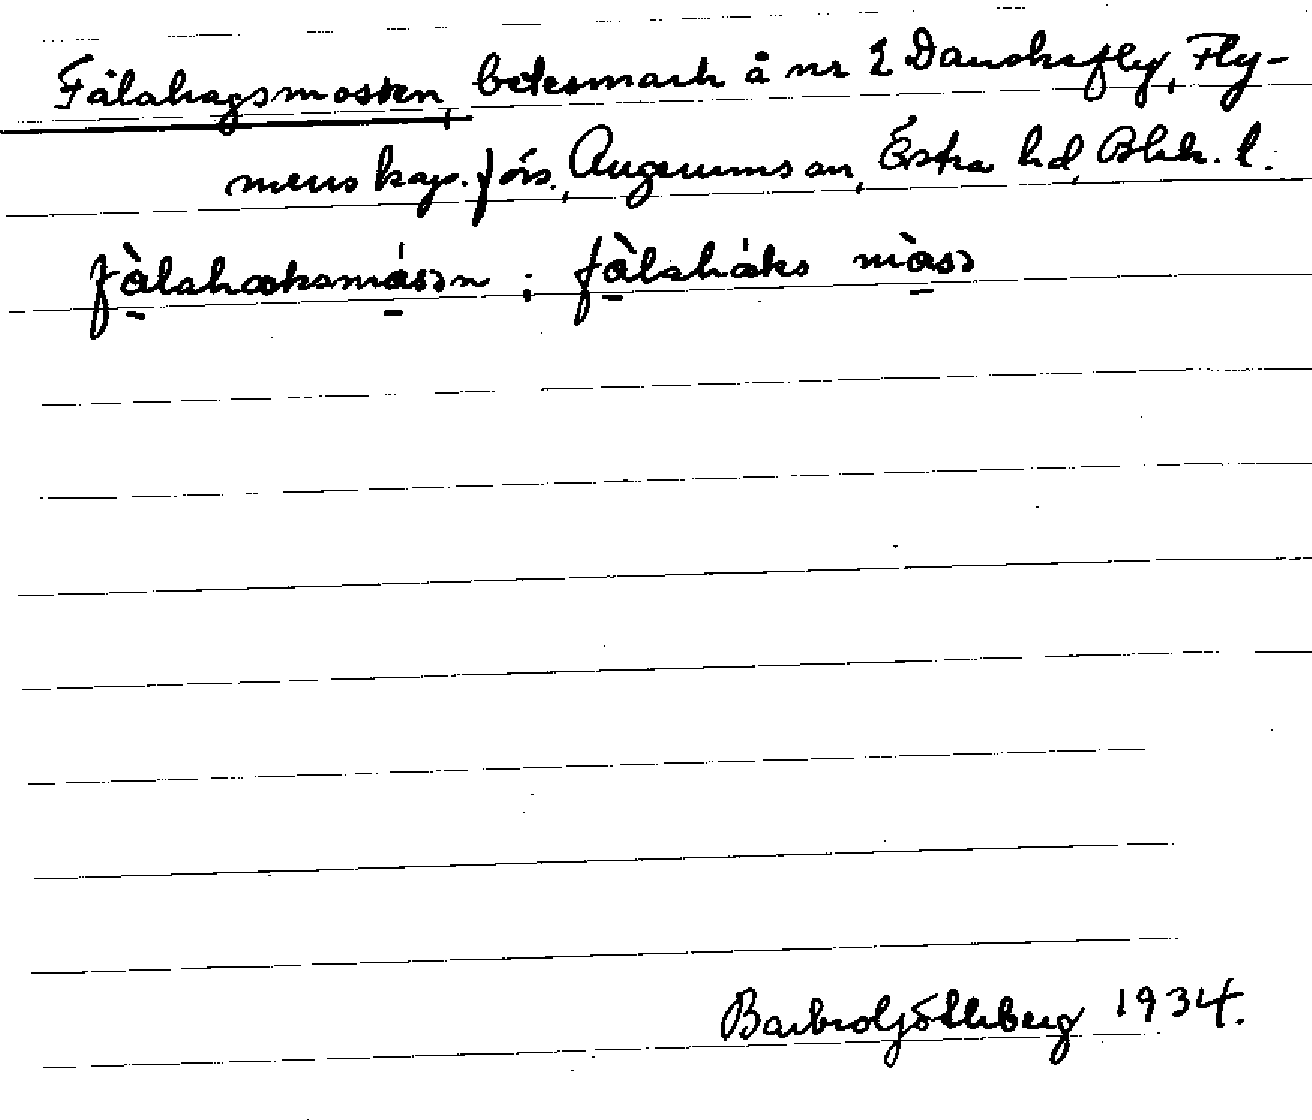 Fälahagsmossen, betesmark å nr 2 Danskefly, Fly-
mens kap. förs., Augerums sn, Östra hd, Blek. l.
fàlahaksmássn ; fàlaháks màsə
Barbro Ljökelberg 1934.